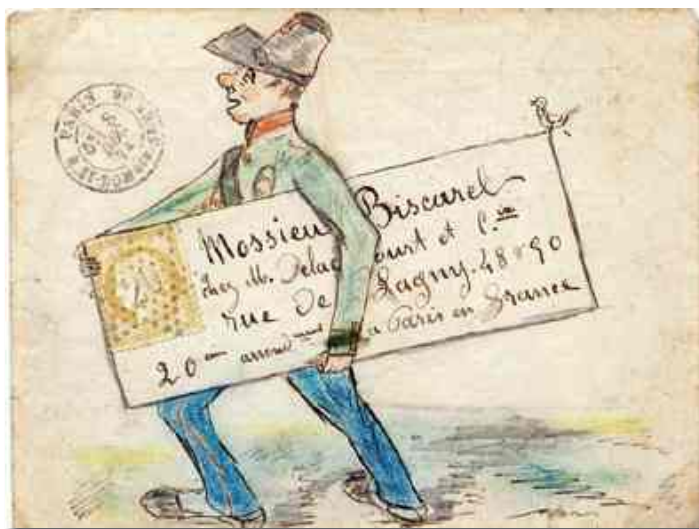 PARIS
20
Mossieu Biscarel
chez M. Dela ourt et C.ie
rue De Lagny. 48
20em a Paris en France